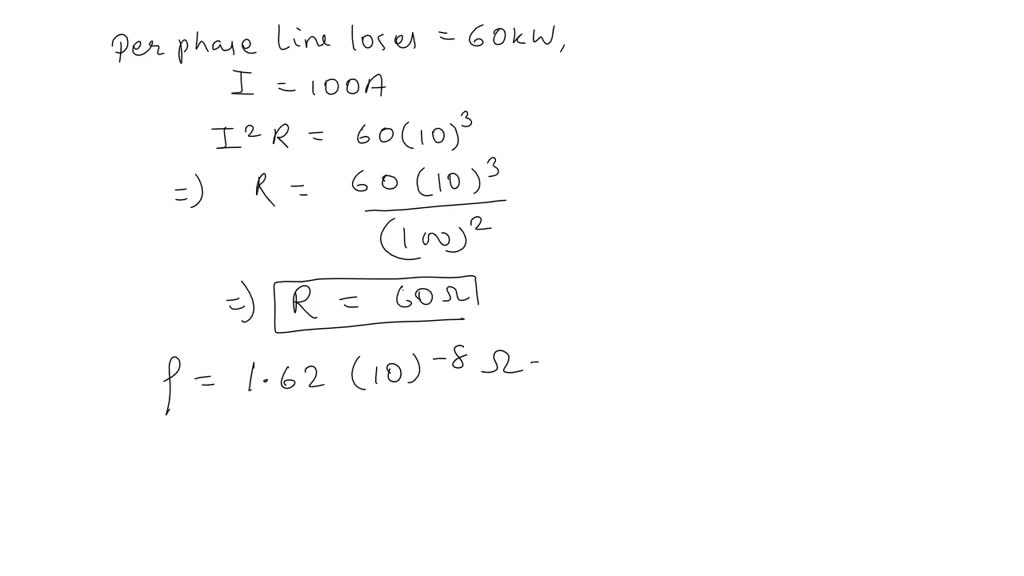 Per phase Line loses = 60kW,
I = 100A
I²R = 60(10)³
=) R = 60(10)³ / (100)²
=) R = 60Ω
ρ = 1.62 (10)⁻⁸ Ω-